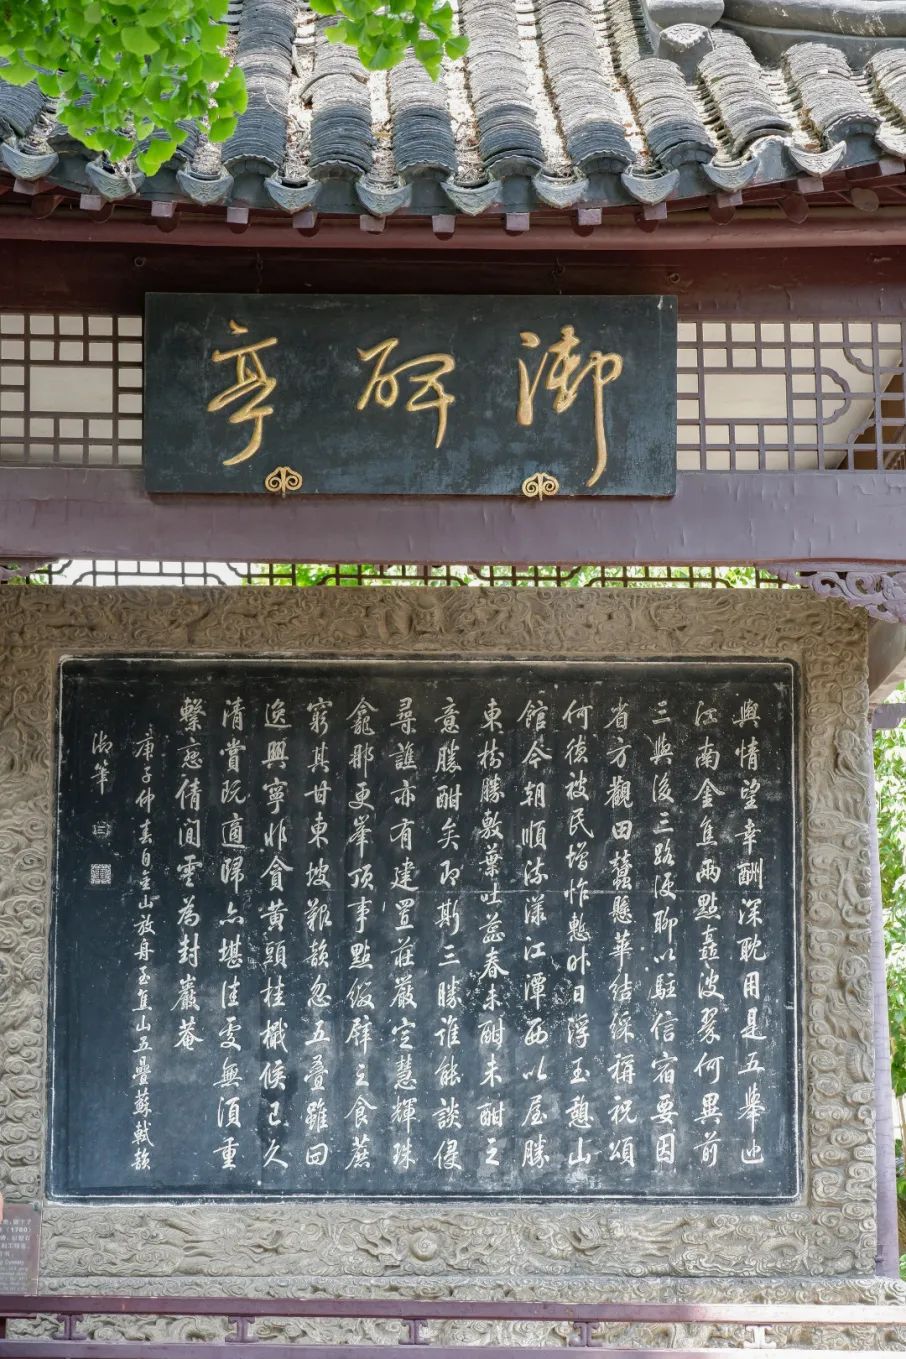 御碑亭
輿情望幸酬深耽用是五舉巡
江南金焦兩點矗波翠何異前
三與後三路便聊以駐信宿要因
省方觀田蠶懸華結綵稱祝頌
何德被民增怍慙昨日浮玉憩山
館今朝順流漾江潭西以屋勝
東樹勝敷葉吐蕊春未酣未酣之
意勝酣矣即斯二勝誰能談侵
尋譙亦有建置莊嚴定慧輝珠
龕那更峯頂事點綴辟之食蔗
窮其甘東坡艱韻忽五疊雖曰
逸興寧非貪黃頭桂檝候已久
清賞既適歸亦堪佳處無須重
繫戀倩閒雲為封巖菴
庚子仲春自金山放舟至焦山五疊蘇軾韻
御筆